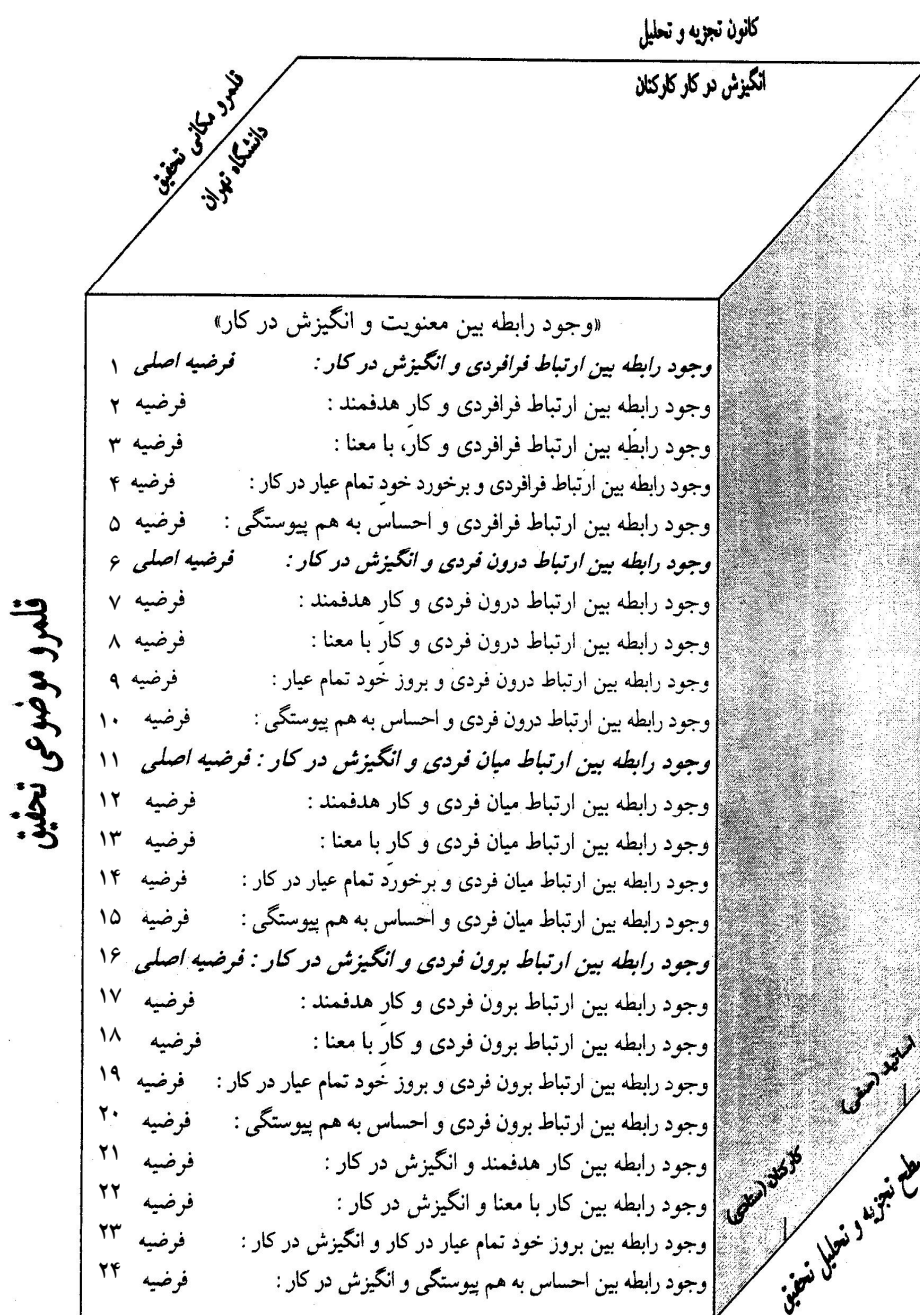 کانون تجزیه و تحلیل
انگیزش در کار کارکنان
قلمرو مکانی تحقیق
دانشگاه تهران
«وجود رابطه بین معنویت و انگیزش در کار»
وجود رابطه بین ارتباط فرافردی و انگیزش در کار : فرضیه اصلی ۱
وجود رابطه بین ارتباط فرافردی و کارِ هدفمند : فرضیه ۲
وجود رابطه بین ارتباط فرافردی و کار، با معنا : فرضیه ۳
وجود رابطه بین ارتباط فرافردی و برخورد خودِ تمام عیار در کار : فرضیه ۴
وجود رابطه بین ارتباط فرافردی و احساس به هم پیوستگی : فرضیه ۵
وجود رابطه بین ارتباط درون فردی و انگیزش در کار : فرضیه اصلی ۶
وجود رابطه بین ارتباط درون فردی و کارِ هدفمند : فرضیه ۷
وجود رابطه بین ارتباط درون فردی و کارِ با معنا : فرضیه ۸
وجود رابطه بین ارتباط درون فردی و بروز خود تمام عیار : فرضیه ۹
وجود رابطه بین ارتباط درون فردی و احساس به هم پیوستگی : فرضیه ۱۰
وجود رابطه بین ارتباط میان فردی و انگیزش در کار : فرضیه اصلی ۱۱
وجود رابطه بین ارتباط میان فردی و کار هدفمند : فرضیه ۱۲
وجود رابطه بین ارتباط میان فردی و کارِ با معنا : فرضیه ۱۳
وجود رابطه بین ارتباط میان فردی و برخورد تمام عیار در کار : فرضیه ۱۴
وجود رابطه بین ارتباط میان فردی و احساس به هم پیوستگی : فرضیه ۱۵
وجود رابطه بین ارتباط برون فردی و انگیزش در کار : فرضیه اصلی ۱۶
وجود رابطه بین ارتباط برون فردی و کارِ هدفمند : فرضیه ۱۷
وجود رابطه بین ارتباط برون فردی و کارِ با معنا : فرضیه ۱۸
وجود رابطه بین ارتباط برون فردی و بروز خود تمام عیار در کار : فرضیه ۱۹
وجود رابطه بین ارتباط برون فردی و احساس به هم پیوستگی : فرضیه ۲۰
وجود رابطه بین کار هدفمند و انگیزش در کار : فرضیه ۲۱
وجود رابطه بین کار با معنا و انگیزش در کار : فرضیه ۲۲
وجود رابطه بین بروز خود تمام عیار در کار و انگیزش در کار : فرضیه ۲۳
وجود رابطه بین احساس به هم پیوستگی و انگیزش در کار : فرضیه ۲۴
قلمرو موضوعی تحقیق
اساتید (صفی)
کارکنان (ستادی)
تجزیه و تحلیل تحقیق